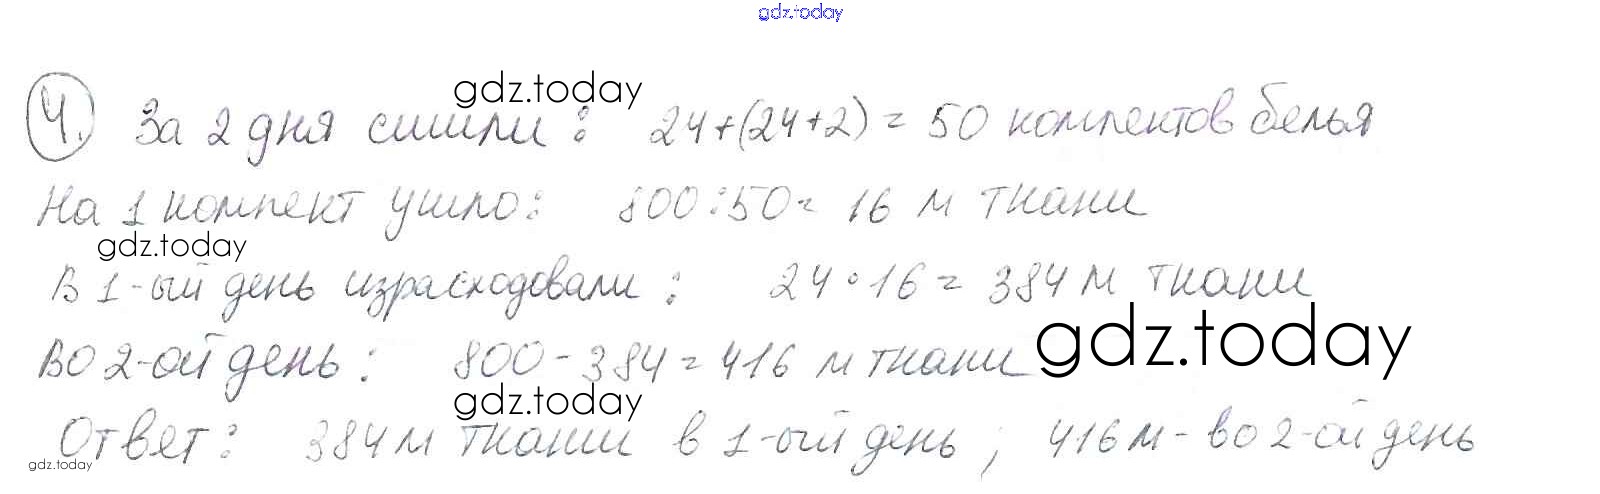 gdz.today
gdz.today
4. За 2 дня сшили: 24+(24+2)=50 компектов белья
На 1 компект ушло: 800:50=16 м ткани
gdz.today
В 1-ый день израсходовали: 24·16=384 м ткани
gdz.today
Во 2-ой день: 800-384=416 м ткани
gdz.today
Ответ: 384 м ткани в 1-ый день; 416 м - во 2-ой день
gdz.today